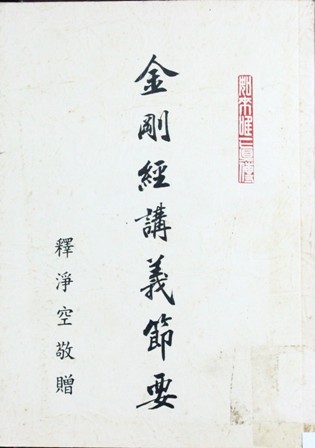 金剛經講義節要
釋淨空敬贈